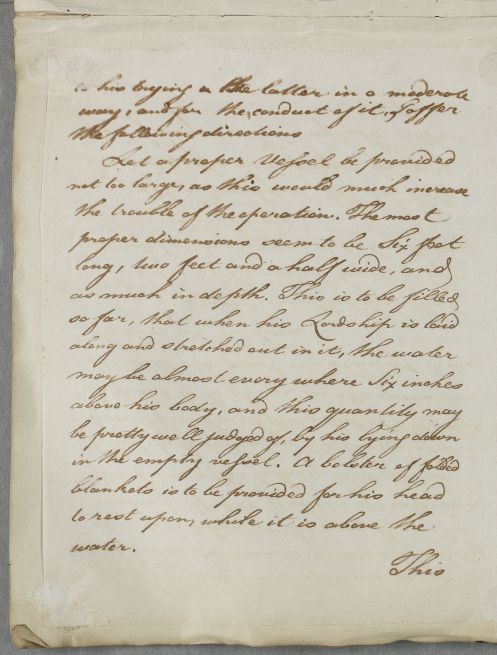 to his trying a the latter in a moderate
way, and for the conduct of it, I offer
the following directions
Let a proper Vessel be provided
not too large, as this would much increase
the trouble of the operation. The most
proper dimensions seem to be Six feet
long, two feet and a half wide, and
as much in depth. This is to be filled
so far, that when his Lordship is laid
along and stretched out in it, the water
may be almost every where Six inches
above his body, and this quantity may
be pretty well judged of, by his lying down
in the empty vessel. A bolster of folded
blankets is to be provided for his head
to rest upon, while it is above the
water.
This